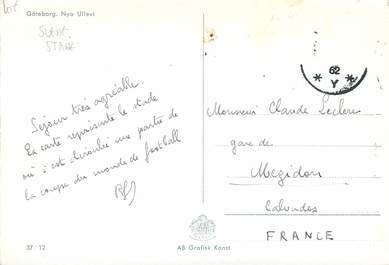 Lot
Göteborg. Nya Ullevi
SUEDE
STADE
Séjour très agréable.
La carte représente le stade
où s'est déroulée une partie de
la coupe du monde de football
62
Y
Monsieur Claude Leclere
gare de
Mezidon
Calvados
FRANCE
37/12
AB Grafisk Konst